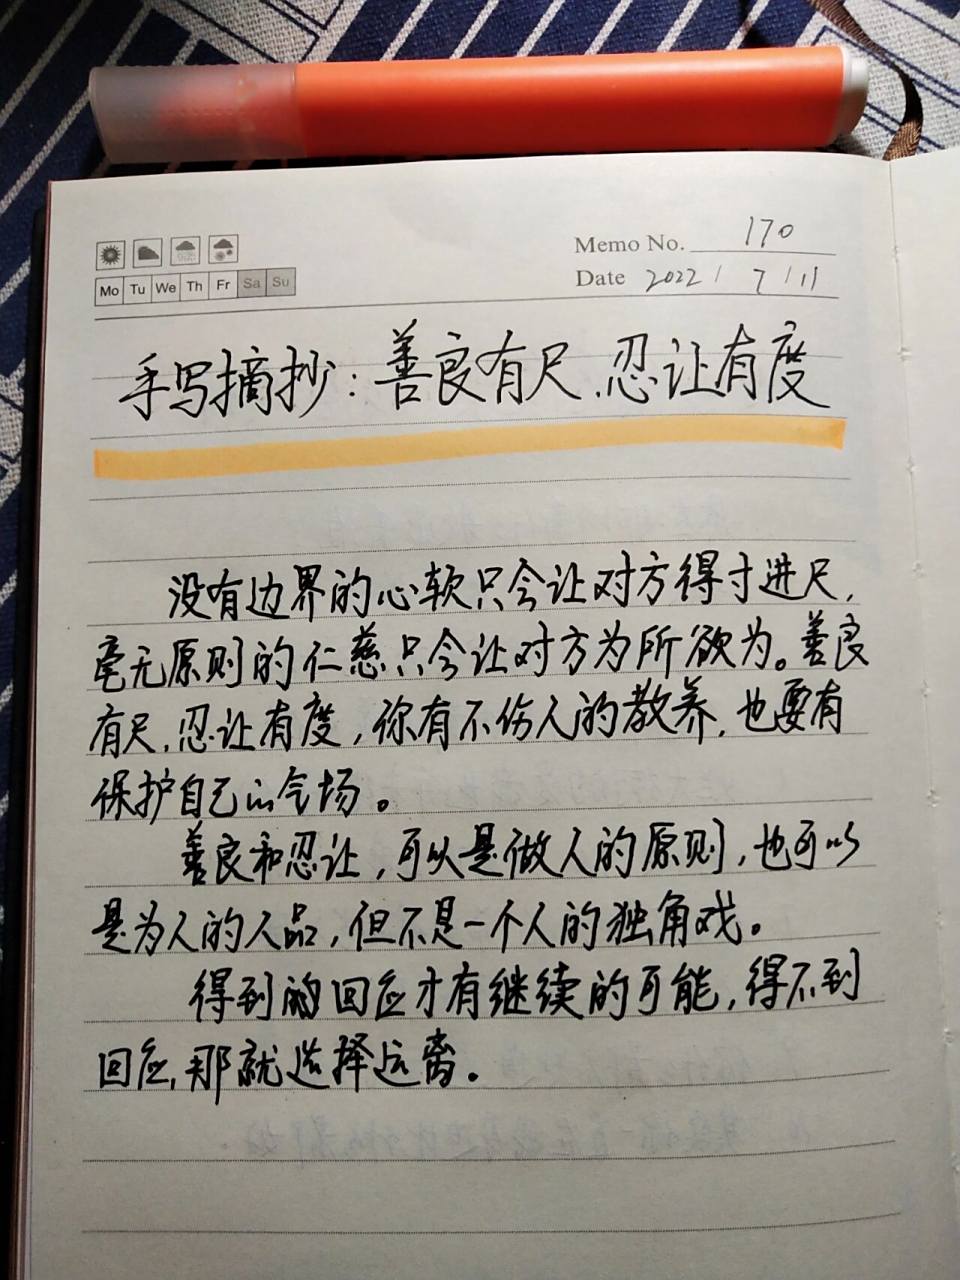 Memo No. 170
Mo Tu We Th Fr Sa Su
Date 2022 / 7 / 11
手写摘抄：善良有尺、忍让有度
没有边界的心软只会让对方得寸进尺，
毫无原则的仁慈只会让对方为所欲为。善良
有尺，忍让有度，你有不伤人的教养，也要有
保护自己的气场。
善良和忍让，可以是做人的原则，也可以
是为人的人品，但不是一个人的独角戏。
得到的回应才有继续的可能，得不到
回应，那就选择远离。